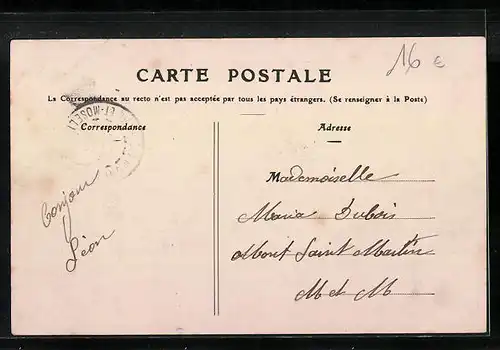 16 €
CARTE POSTALE
La Correspondance au recto n'est pas acceptée par tous les pays étrangers. (Se renseigner à la Poste)
Correspondance
Adresse
ET-MOSELLE
Mademoiselle
Maria Dubois
Mont Saint Martin
M et M
Bonjour
Léon